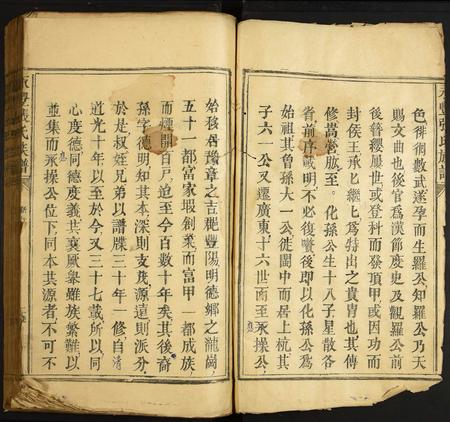 色徘徊數武遂孕而生羅公知羅公乃天
賜文曲也後官為漢節度史及觀羅公前
後簪纓屢世或登科而發頂甲或因功而
封侯王承匕繼匕為特出之貴胄也其傳
修蒿營肱至。化孫公生十八子星散各
省前序咸明不必復贅後即以化孫公為
始祖其魯孫大一公徙閩中而居上杭其
子六一公又遷廣東十六世而至永操公
始移居豫章之吉龍豐陽明德鄉之瀧崗
五十一都富家塅創柔而富甲一都成族
而煙開百戶迨至今百數十年矣其後裔
孫字德明知其本深則支茂源遠則派分
於是叔姪兄弟以譜牒三十年一修自清
道光十年以至於今又三十七載所以同
心度德阿德度義共襄厥舉雖族繁難以
並集而永操公位下同本其源者不可不
張氏族譜